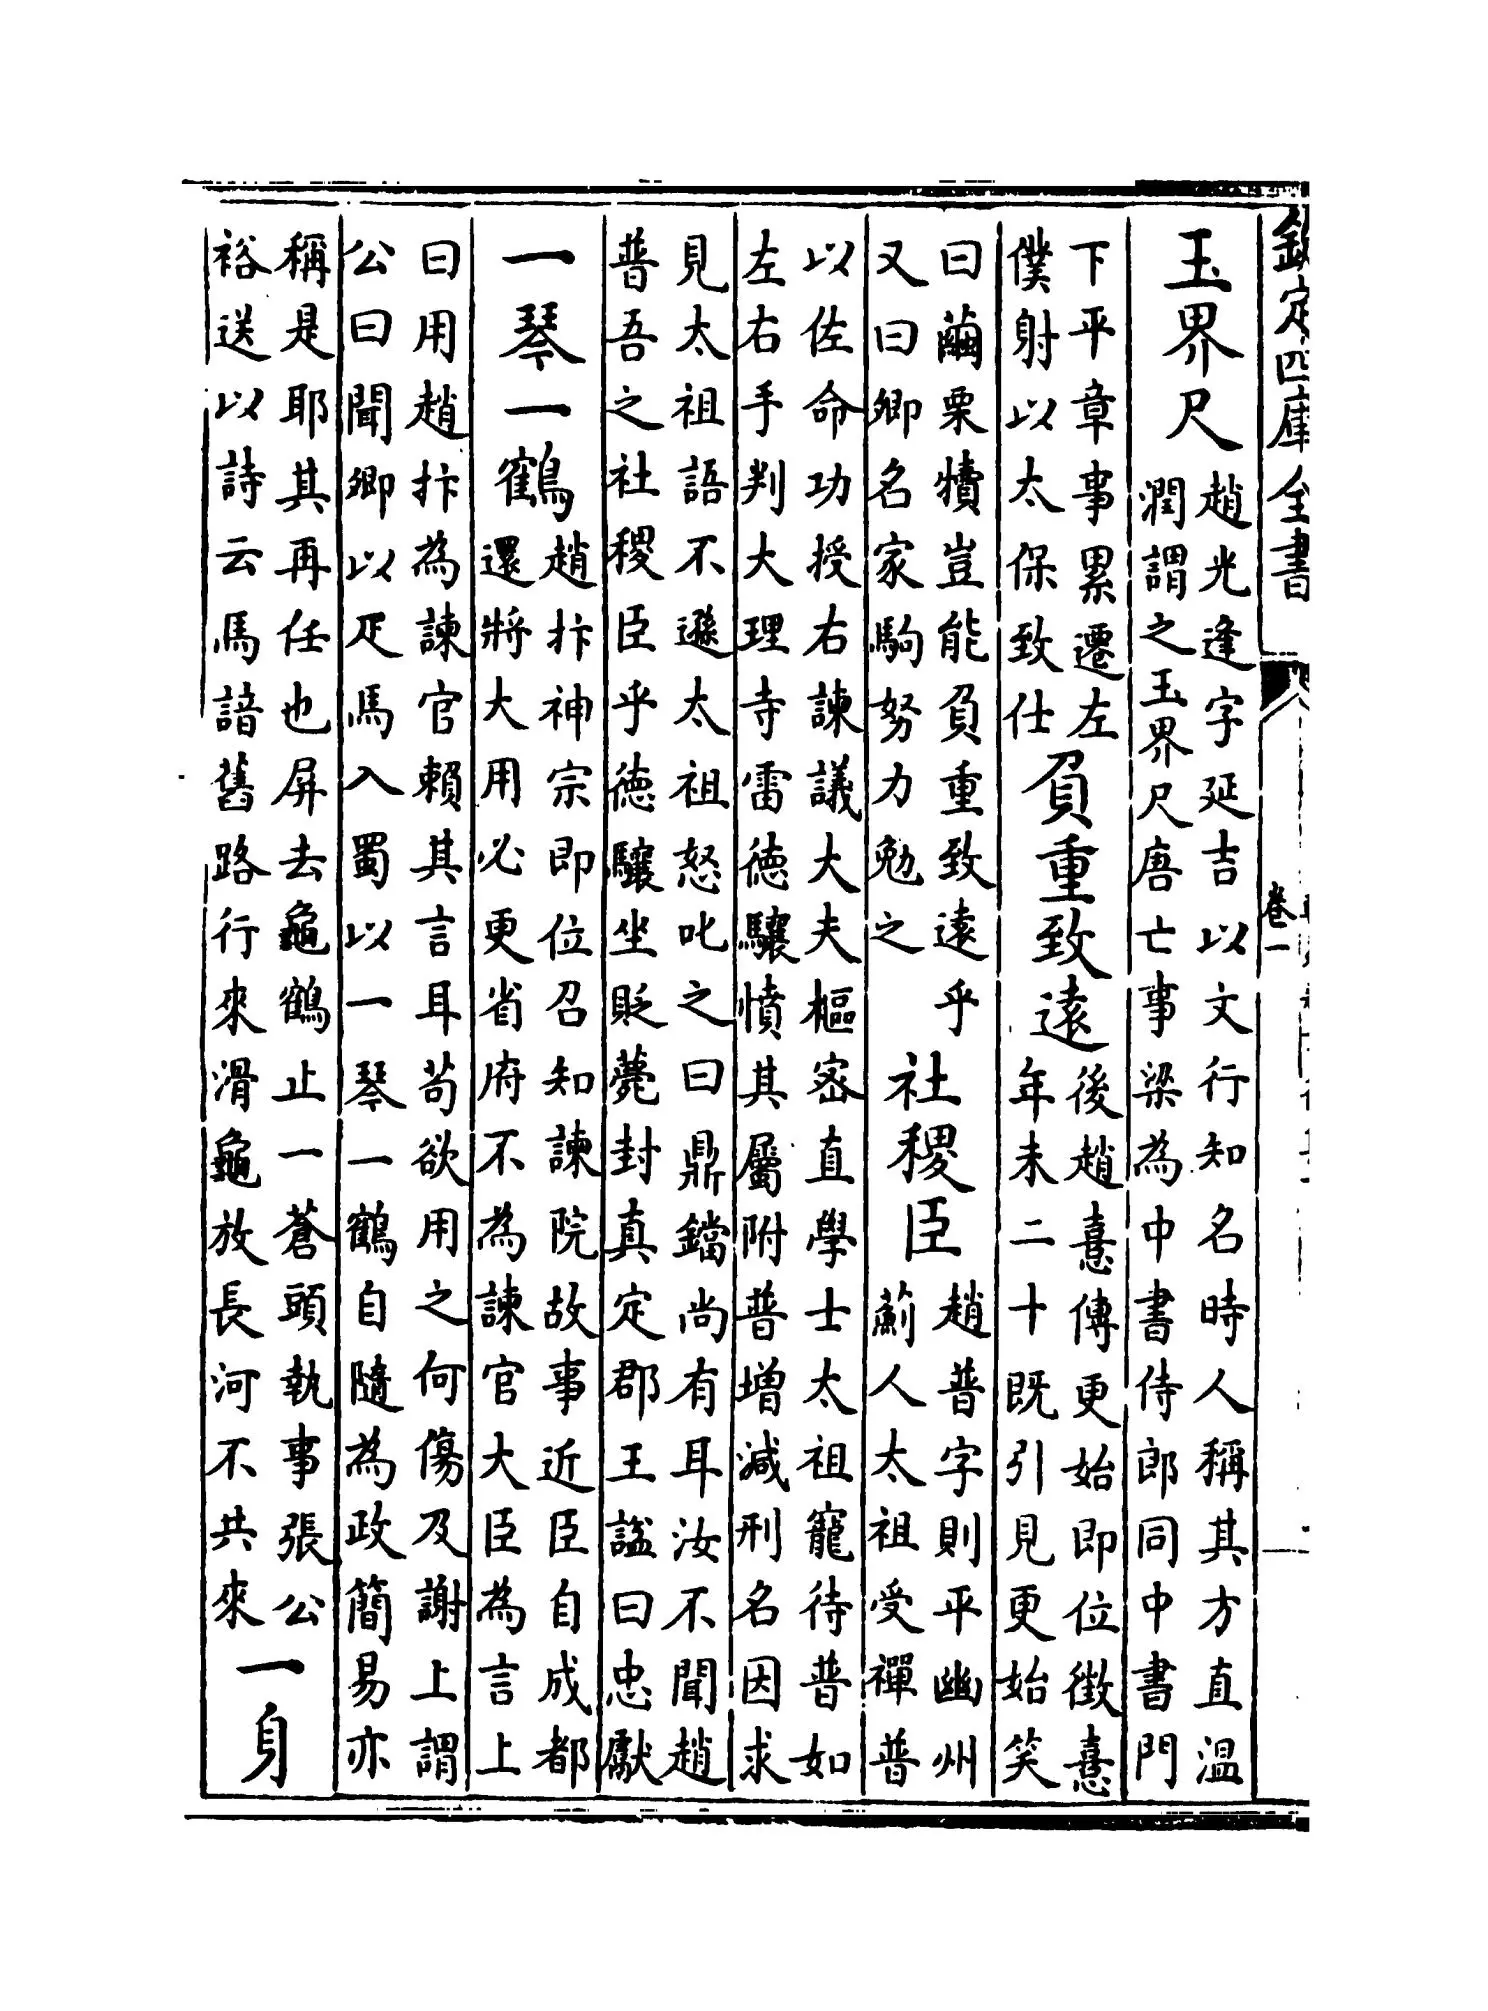 欽定四庫全書
卷一
玉界尺
趙光逢字延吉以文行知名時人稱其方直温
潤謂之玉界尺唐亡事梁為中書侍郎同中書門
下平章事累遷左
僕射以太保致仕
負重致遠
後趙憙傳更始即位徵憙
年未二十既引見更始笑
曰繭栗犢豈能負重致遠乎
又曰卿名家駒努力勉之
社稷臣
趙普字則平幽州
薊人太祖受禪普
以佐命功授右諫議大夫樞密直學士太祖寵待普如
左右手判大理寺雷德驤憤其屬附普增減刑名因求
見太祖語不遜太祖怒叱之曰鼎鐺尚有耳汝不聞趙
普吾之社稷臣乎德驤坐貶薨封真定郡王諡曰忠獻
一琴一鶴
趙抃神宗即位召知諫院故事近臣自成都
還將大用必更省府不為諫官大臣為言上
曰用趙抃為諫官賴其言耳苟欲用之何傷及謝上謂
公曰聞卿以疋馬入蜀以一琴一鶴自隨為政簡易亦
稱是耶其再任也屏去龜鶴止一蒼頭執事張公
裕送以詩云馬諳舊路行來滑龜放長河不共來
一身